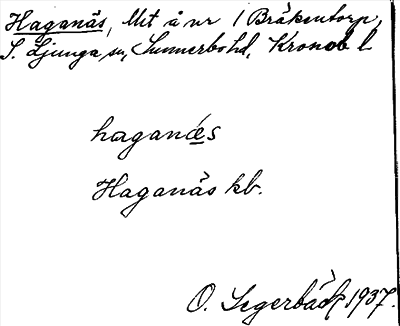 Haganäs, Ut å nr 1 Bräkentorp,
S. Ljunga sn, Sunnerbo hd, Kronob l
haganæs
Haganäs kb.
O. Segerbäck 1937.